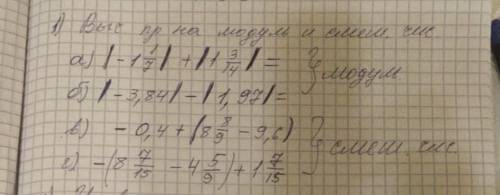 1) Выс пр на модуль и смеш. чис.
а) |-1 1/7| + |1 3/14| = } модуль
б) |-3,84| - |1,97| =
в) -0,4 + (8 8/9 - 9,6) } смеш. чис.
г) -(8 7/15 - 4 5/9) + 1 7/15